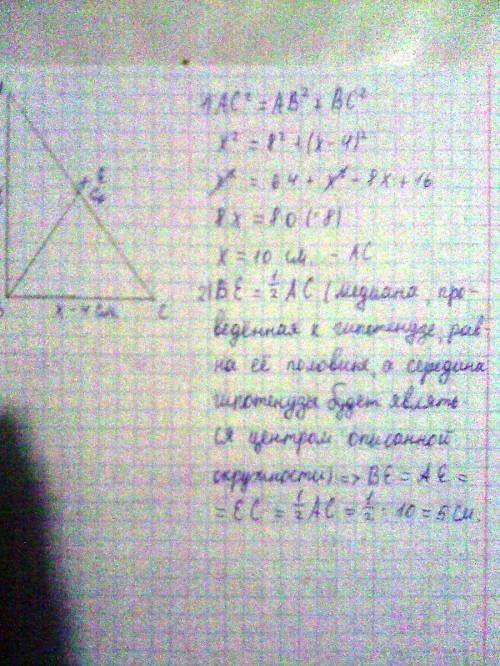 1) AC² = AB² + BC²
x² = 8² + (x-4)²
x² = 64 + x² - 8x + 16
8x = 80 (:8)
x = 10 см. - AC
2) BE = 1/2 AC (медиана, про-
ведённая к гипотенузе, рав-
на её половине, а середина
гипотенузы будет являть-
ся центром описанной
окружности) => BE = AE =
= EC = 1/2 AC = 1/2 · 10 = 5 см.
E
x - 4 см
C